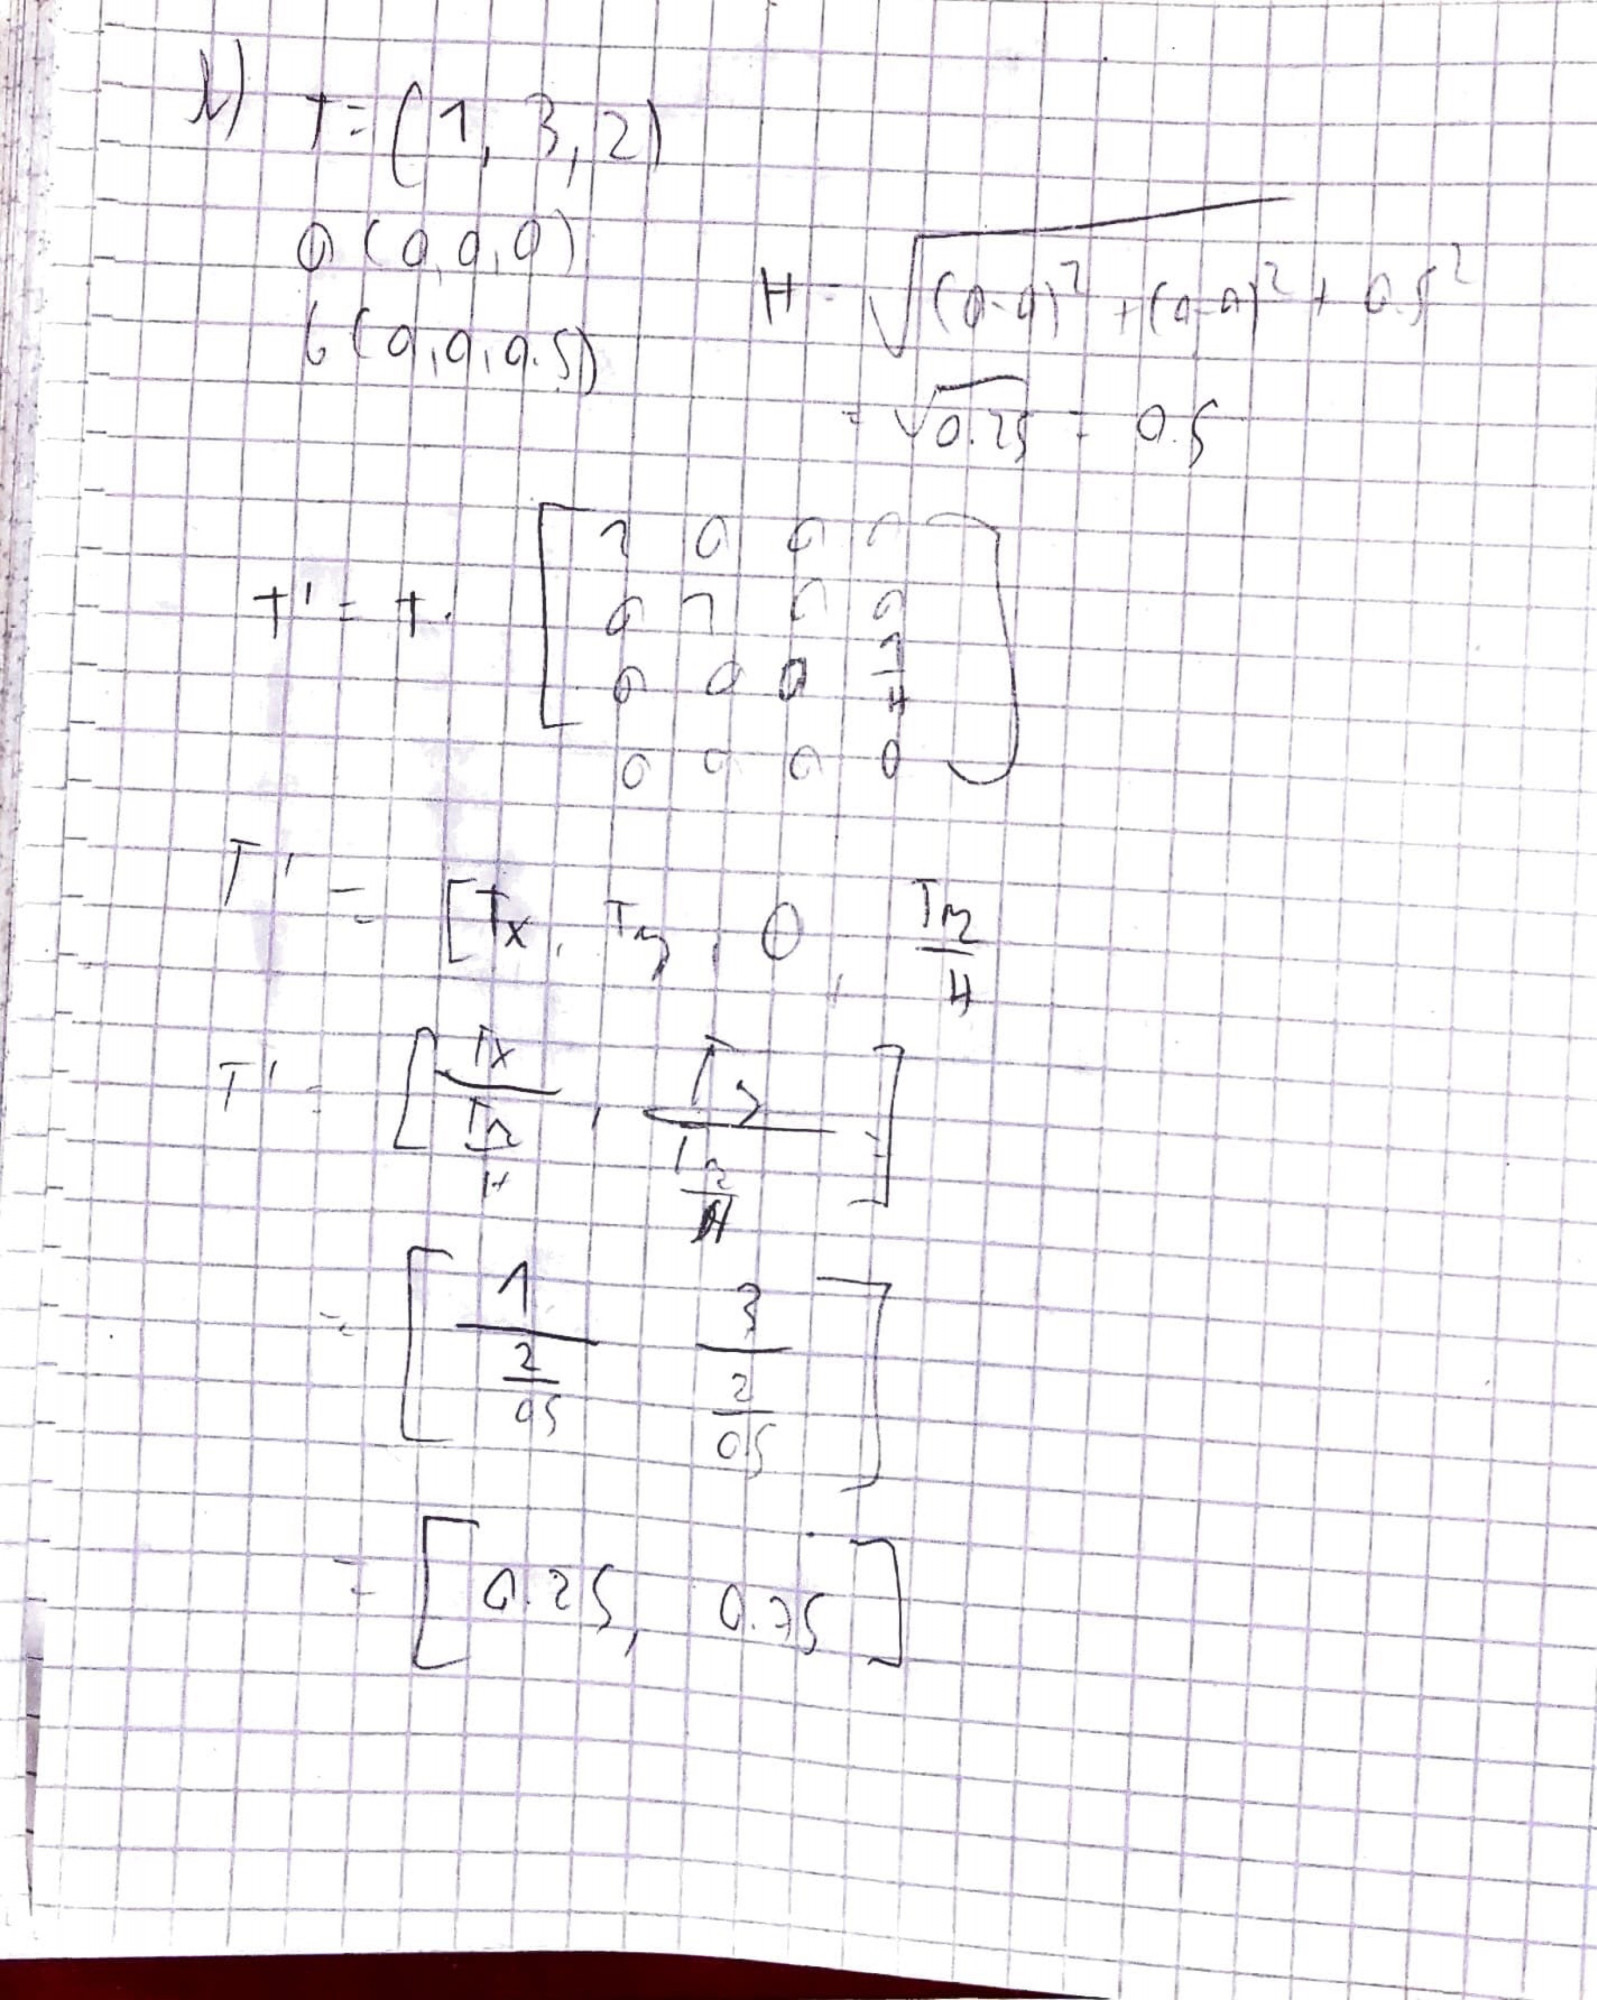 b) T = (1, 3, 2)
a (0, 0, 0)
b (0, 0, 0.5)
H = √((0-0)² + (0-0)² + 0.5²)
= √0.25 = 0.5
T' = T · [ 1 0 0 0
0 1 0 0
0 0 0 1/H
0 0 0 0 ]
T' = [Tx, Ty, 0, Tz/H
T' = [ Tx/(Tz/H), Ty/(Tz/H) ] =
= [ 1/(2/0.5) 3/(2/0.5) ]
= [ 0.25, 0.75 ]